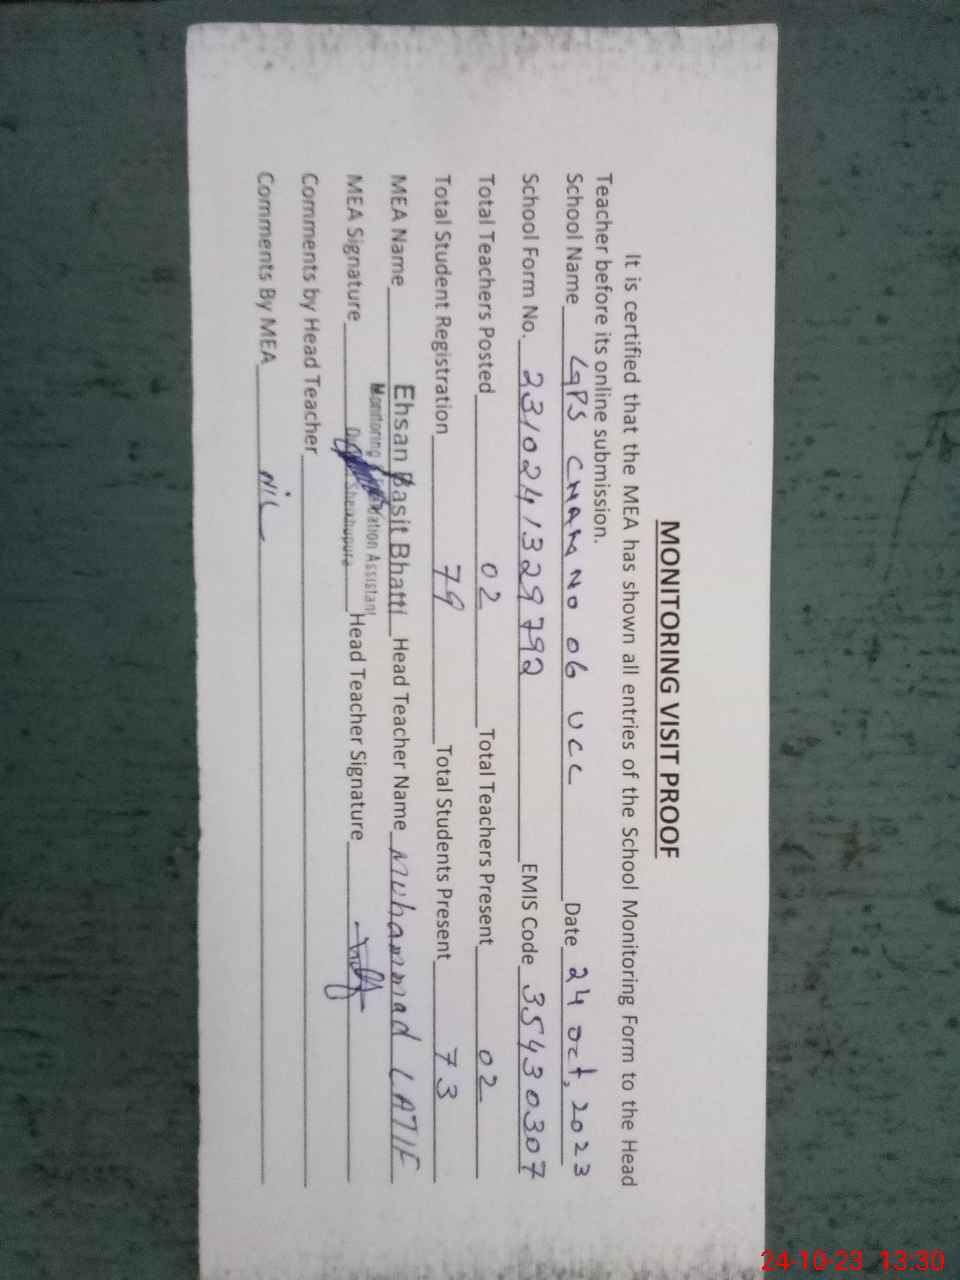 MONITORING VISIT PROOF
It is certified that the MEA has shown all entries of the School Monitoring Form to the Head
Teacher before its online submission.
School Name GPS CHAK No 06 UCC Date 24 Oct, 2023
School Form No. 2310241329792 EMIS Code 35430307
Total Teachers Posted 02 Total Teachers Present 02
Total Student Registration 79 Total Students Present 73
MEA Name Ehsan Basit Bhatti Head Teacher Name Muhammad LATIF
Monitoring Assistant
MEA Signature Sheikhupura Head Teacher Signature
Comments by Head Teacher
Comments By MEA NIL
24-10-23 13:30